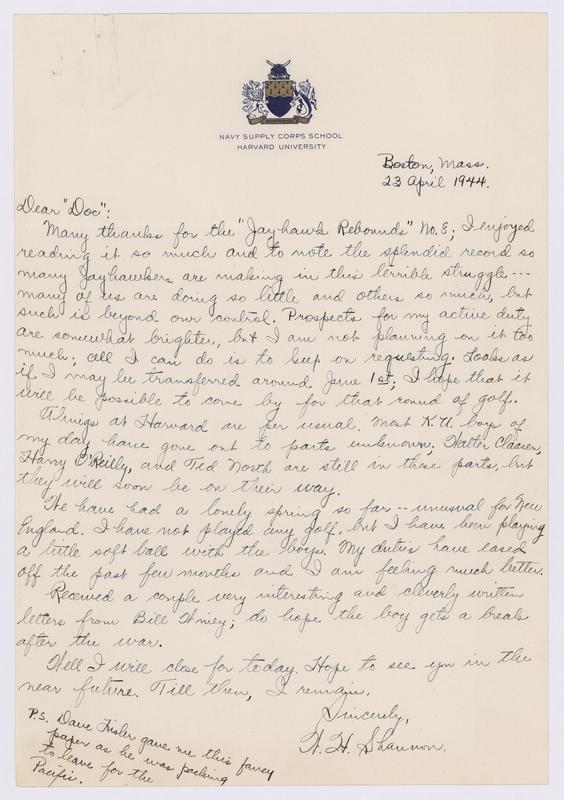 NAVY SUPPLY CORPS SCHOOL
HARVARD UNIVERSITY
Boston, Mass.
23 April 1944.
Dear "Doc":
Many thanks for the "Jayhawk Rebounds" No. 8; I enjoyed
reading it so much and to note the splendid record so
many Jayhawkers are making in this terrible struggle ---
many of us are doing so little and others so much, but
such is beyond our control. Prospects for my active duty
are somewhat brighter, but I am not planning on it too
much; all I can do is to keep on requesting. Looks as
if I may be transferred around June 1st; I hope that it
will be possible to come by for that round of golf.
Things at Harvard are per usual. Most K.U. boys of
my day have gone out to parts unknown; Walter Claasen,
Harry O'Reilly, and Ted North are still in these parts, but
they will soon be on their way.
We have had a lonely spring so far -- unusual for New
England. I have not played any golf, but I have been playing
a little soft ball with the boys. My duties have eased
off the past few months and I am feeling much better.
Received a couple very interesting and cleverly written
letters from Bill Winey; do hope the boy gets a break
after the war.
Well I will close for today. Hope to see you in the
near future. Till then, I remain,
Sincerely,
W. H. Shannon.
P.S. Dave Fisler gave me this fancy
paper as he was packing
to leave for the
Pacific.